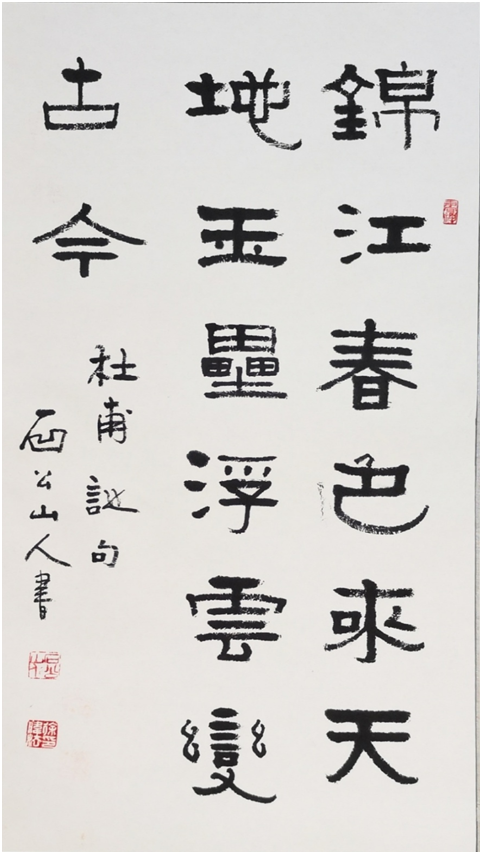 錦江春色來天
地玉壘浮雲變
古今
杜甫詩句
公山人書